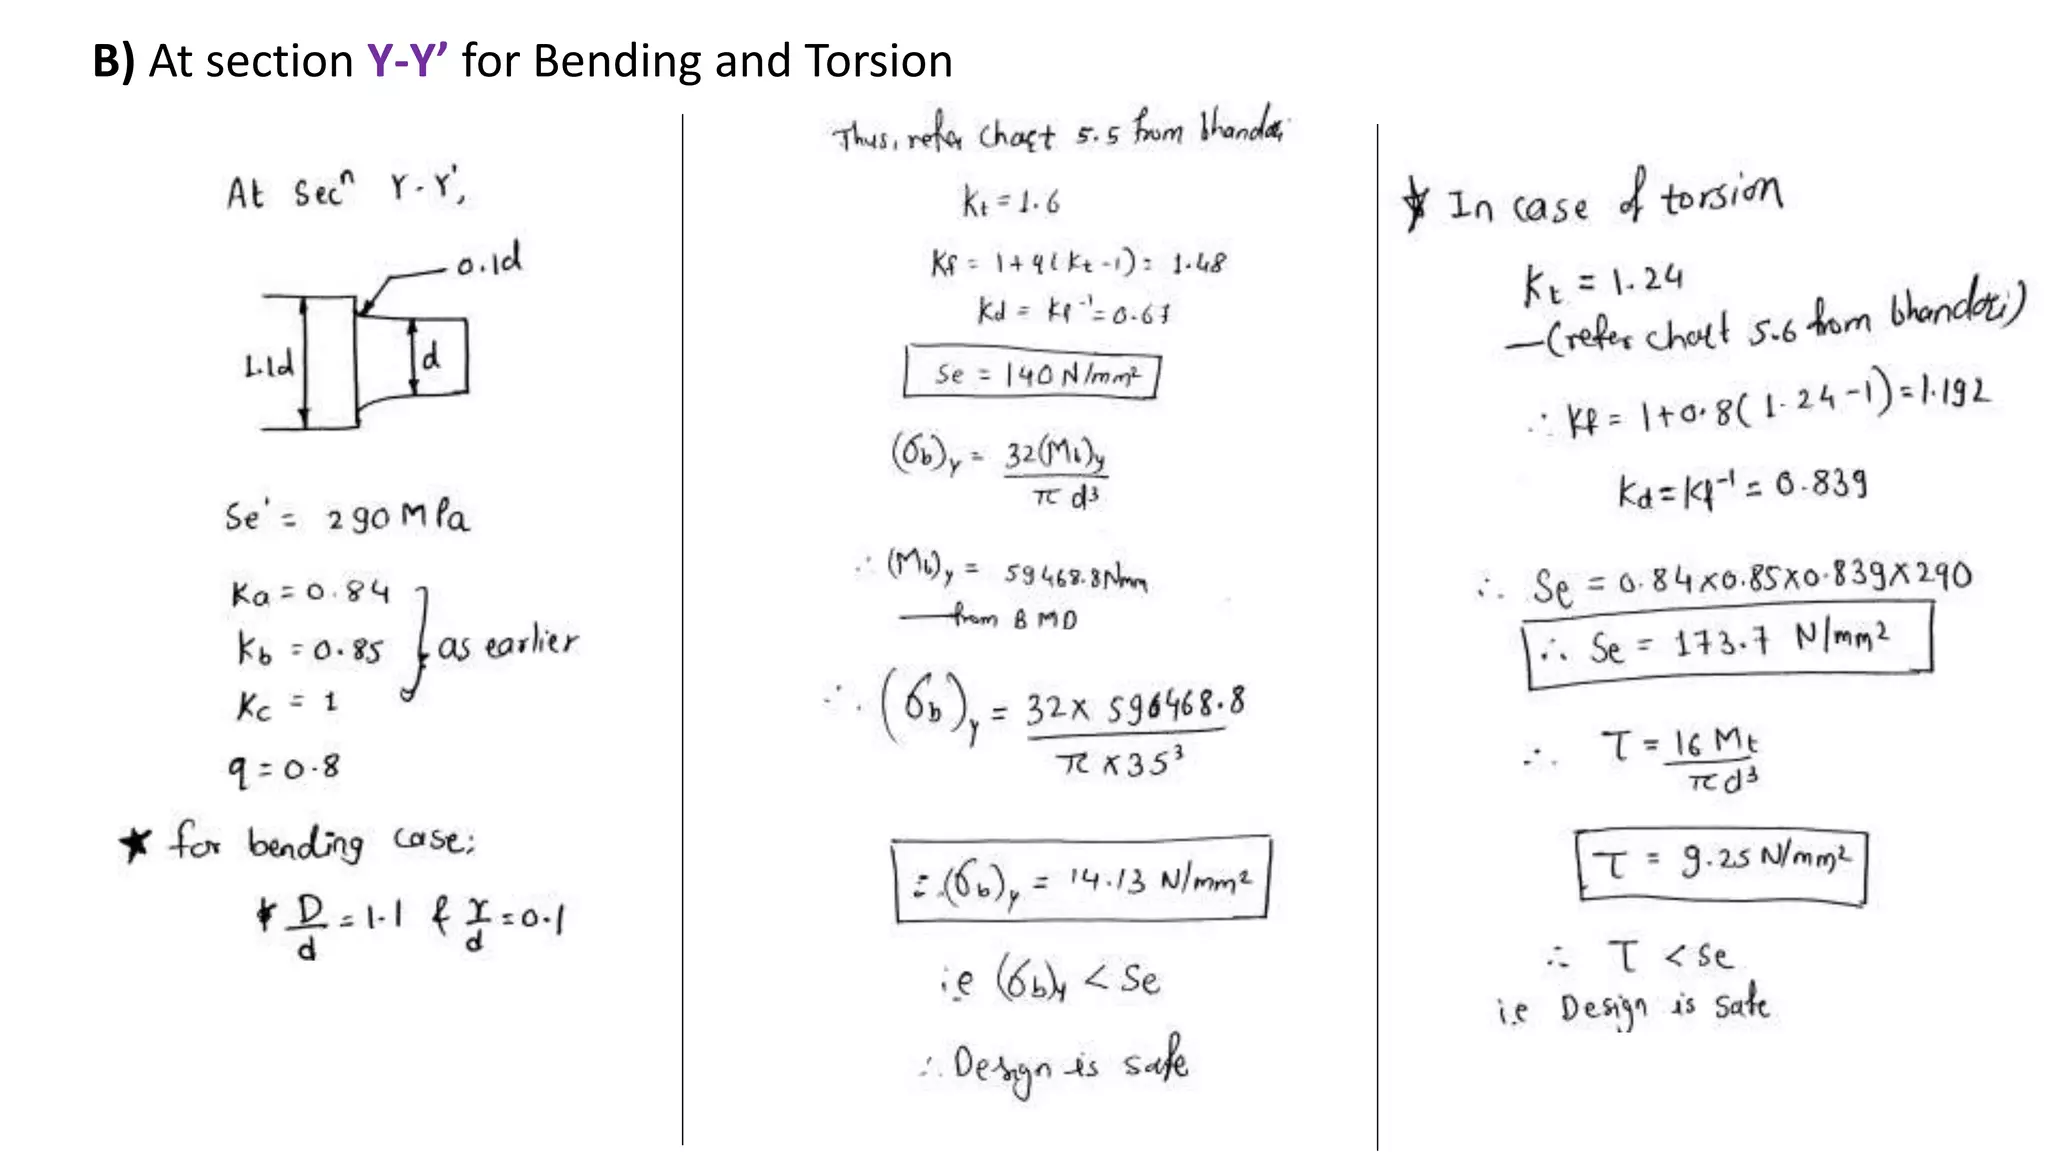 B) At section Y-Y’ for Bending and Torsion
At Secⁿ Y-Y',
0.1d
1.1d
d
Se' = 290 MPa
Ka = 0.84
Kb = 0.85
as earlier
Kc = 1
q = 0.8
★ for bending case:
* D/d = 1.1 & r/d = 0.1
Thus, refer Chart 5.5 from bhandari
Kt = 1.6
Kf = 1+q(Kt-1) = 1.48
Kd = Kf⁻¹ = 0.67
Se = 140 N/mm²
(σb)y = 32(Mb)y / π d³
∴ (Mb)y = 59468.8 Nmm
— from BMD
∴ (σb)y = 32 × 596468.8 / π × 35³
∴ (σb)y = 14.13 N/mm²
i.e (σb)y < Se
∴ Design is safe
* In case of torsion
Kt = 1.24
— (refer chart 5.6 from bhandari)
∴ Kf = 1+0.8(1.24-1) = 1.192
Kd = Kf⁻¹ = 0.839
∴ Se = 0.84×0.85×0.839×290
∴ Se = 173.7 N/mm²
∴ τ = 16 Mt / π d³
τ = 9.25 N/mm²
∴ τ < Se
i.e Design is safe